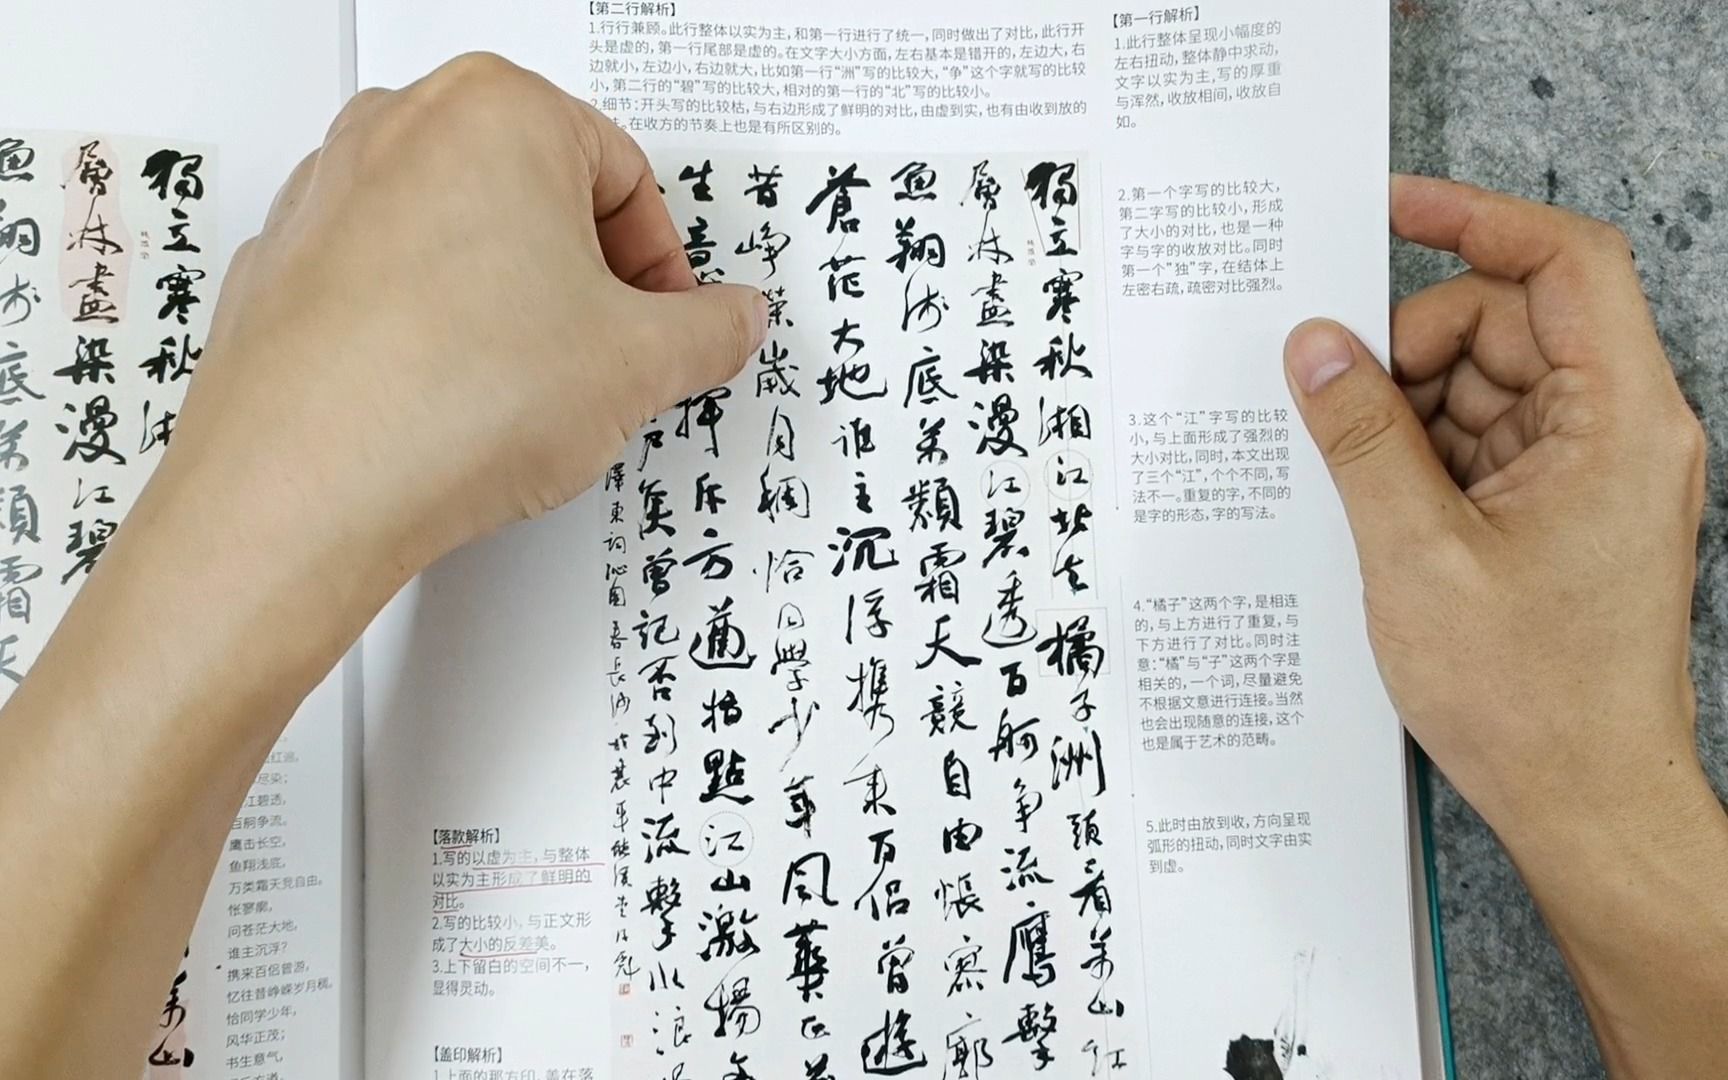 【第二行解析】
1.行行兼顾。此行整体以实为主，和第一行进行了统一，同时做出了对比，此行开
头是虚的，第一行尾部是虚的。在文字大小方面，左右基本是错开的，左边大，右
边就小，左边小，右边就大，比如第一行“洲”写的比较大，“争”这个字就写的比较
小，第二行的“碧”写的比较大，相对的第一行的“北”写的比较小。
2.细节：开头写的比较枯，与右边形成了鲜明的对比，由虚到实，也有由收到放的
。在收方的节奏上也是有所区别的。
【第一行解析】
1.此行整体呈现小幅度的
左右扭动，整体静中求动，
文字以实为主，写的厚重
与浑然，收放相间，收放自
如。
2.第一个字写的比较大，
第二字写的比较小，形成
了大小的对比，也是一种
字与字的收放对比。同时
第一个“独”字，在结体上
左密右疏，疏密对比强烈。
3.这个“江”字写的比较
小，与上面形成了强烈的
大小对比，同时，本文出现
了三个“江”，个个不同，写
法不一。重复的字，不同的
是字的形态，字的写法。
4.“橘子”这两个字，是相连
的，与上方进行了重复，与
下方进行了对比。同时注
意：“橘”与“子”这两个字是
相关的，一个词，尽量避免
不根据文意进行连接。当然
也会出现随意的连接，这个
也是属于艺术的范畴。
5.此时由放到收，方向呈现
弧形的扭动，同时文字由实
到虚。
獨立寒秋湘江北去橘子洲頭看萬山红
層林盡染漫江碧透百舸争流鷹擊
魚翔浅底萬類霜天競自由悵寥廓
蒼茫大地谁主沉浮携来百侣曾遊
昔峥嵘歲月稠恰同學少年風華正茂
生意 揮斥方遒指點江山激揚
户侯曾記否到中流擊水浪
澤東词沁園春長沙
【落款解析】
1.写的以虚为主，与整体
以实为主形成了鲜明的
对比。
2.写的比较小，与正文形
成了大小的反差美。
3.上下留白的空间不一，
显得灵动。
【盖印解析】
1.上面的那方印，盖在落
獨立寒秋
層林盡染漫江碧
魚翔浅底萬類霜天
红遍，
尽染；
江碧透，
百舸争流。
鹰击长空，
鱼翔浅底，
万类霜天竞自由。
怅寥廓，
问苍茫大地，
谁主沉浮？
携来百侣曾游，
忆往昔峥嵘岁月稠。
恰同学少年，
风华正茂；
书生意气，